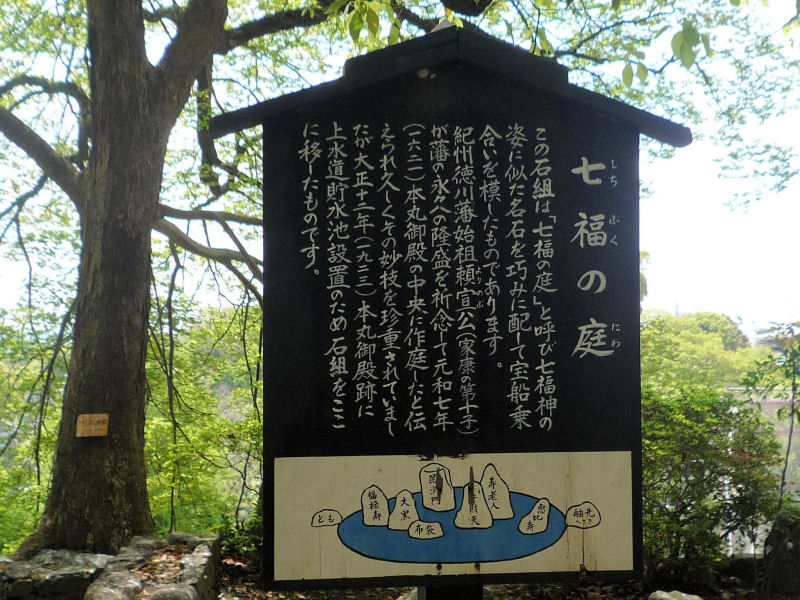 七福の庭
しち ふく にわ
この石組は「七福の庭」と呼び七福神の
姿に似た名石を巧みに配して宝船乗
合いを模したものであります。
紀州徳川藩始祖頼宣公(家康の第十子)
よりのぶ
が藩の永久の隆盛を祈念して元和七年
(一六二一)本丸御殿の中央に作庭したと伝
えられ久しくその妙技を珍重されていまし
たが大正十二年(一九二三)本丸御殿跡に
上水道貯水池設置のため石組をここ
に移したものです。
とも
福禄寿
大黒
布袋
毘沙門
寿老人
恵比寿
舳先
へさき